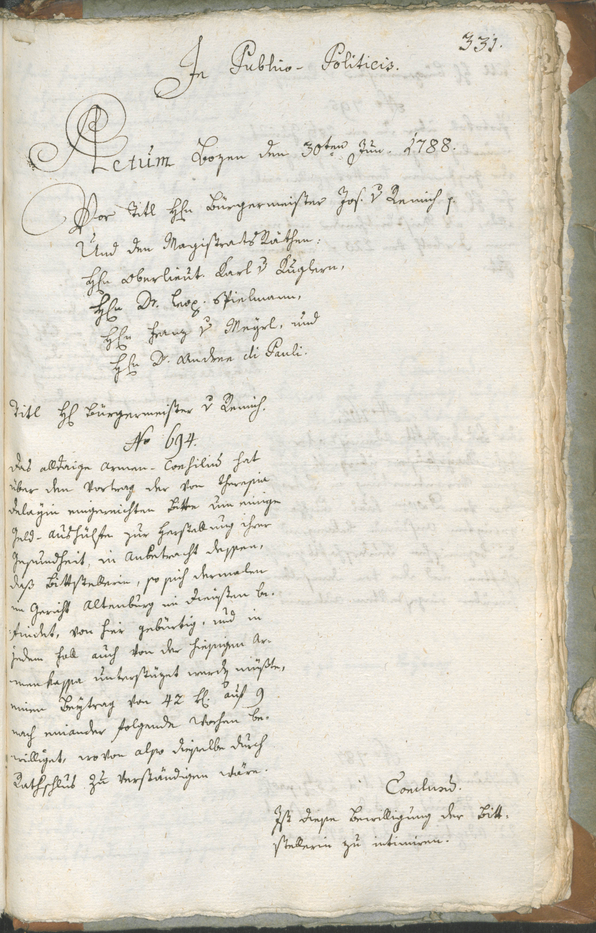 331.
In Publico-Politicis.
Actum Bozen den 30ten Jun. 1788.
Vor Titl Hn Bürgermeister Jos. v Remich,
Und den Magistrats Räthen:
Hn Oberlieut. Karl v Kuglern,
Hn Dr. Leop. Spielmann,
Hn Franz v Mayrl, und
Hn D. Andree di Pauli.
Titl H Bürgermeister v Remich.
No 694.
Das alldaige Armen-Consilium hat
über den Vortrag der von Theresia
Delagin eingereichten Bitte um einige
Geld-Aushülfe zur Herstellung ihrer
Gesundheit, in Anbetracht dessen,
daß Bittstellerin, so sich dermalen
im Gericht Altenburg in Diensten be-
findet, von hier gebürtig, und in
jedem Fall auch von der hiesigen Ar-
menkassa unterstüzet werden müßte,
einen Beytrag von 42 kr. auf 9
nach einander folgende Wochen be-
williget, wovon also dieselbe durch
Rathschlus zu verständigen wäre.
Conclusum.
Ist diese Bewilligung der Bitt-
stellerin zu intimiren.